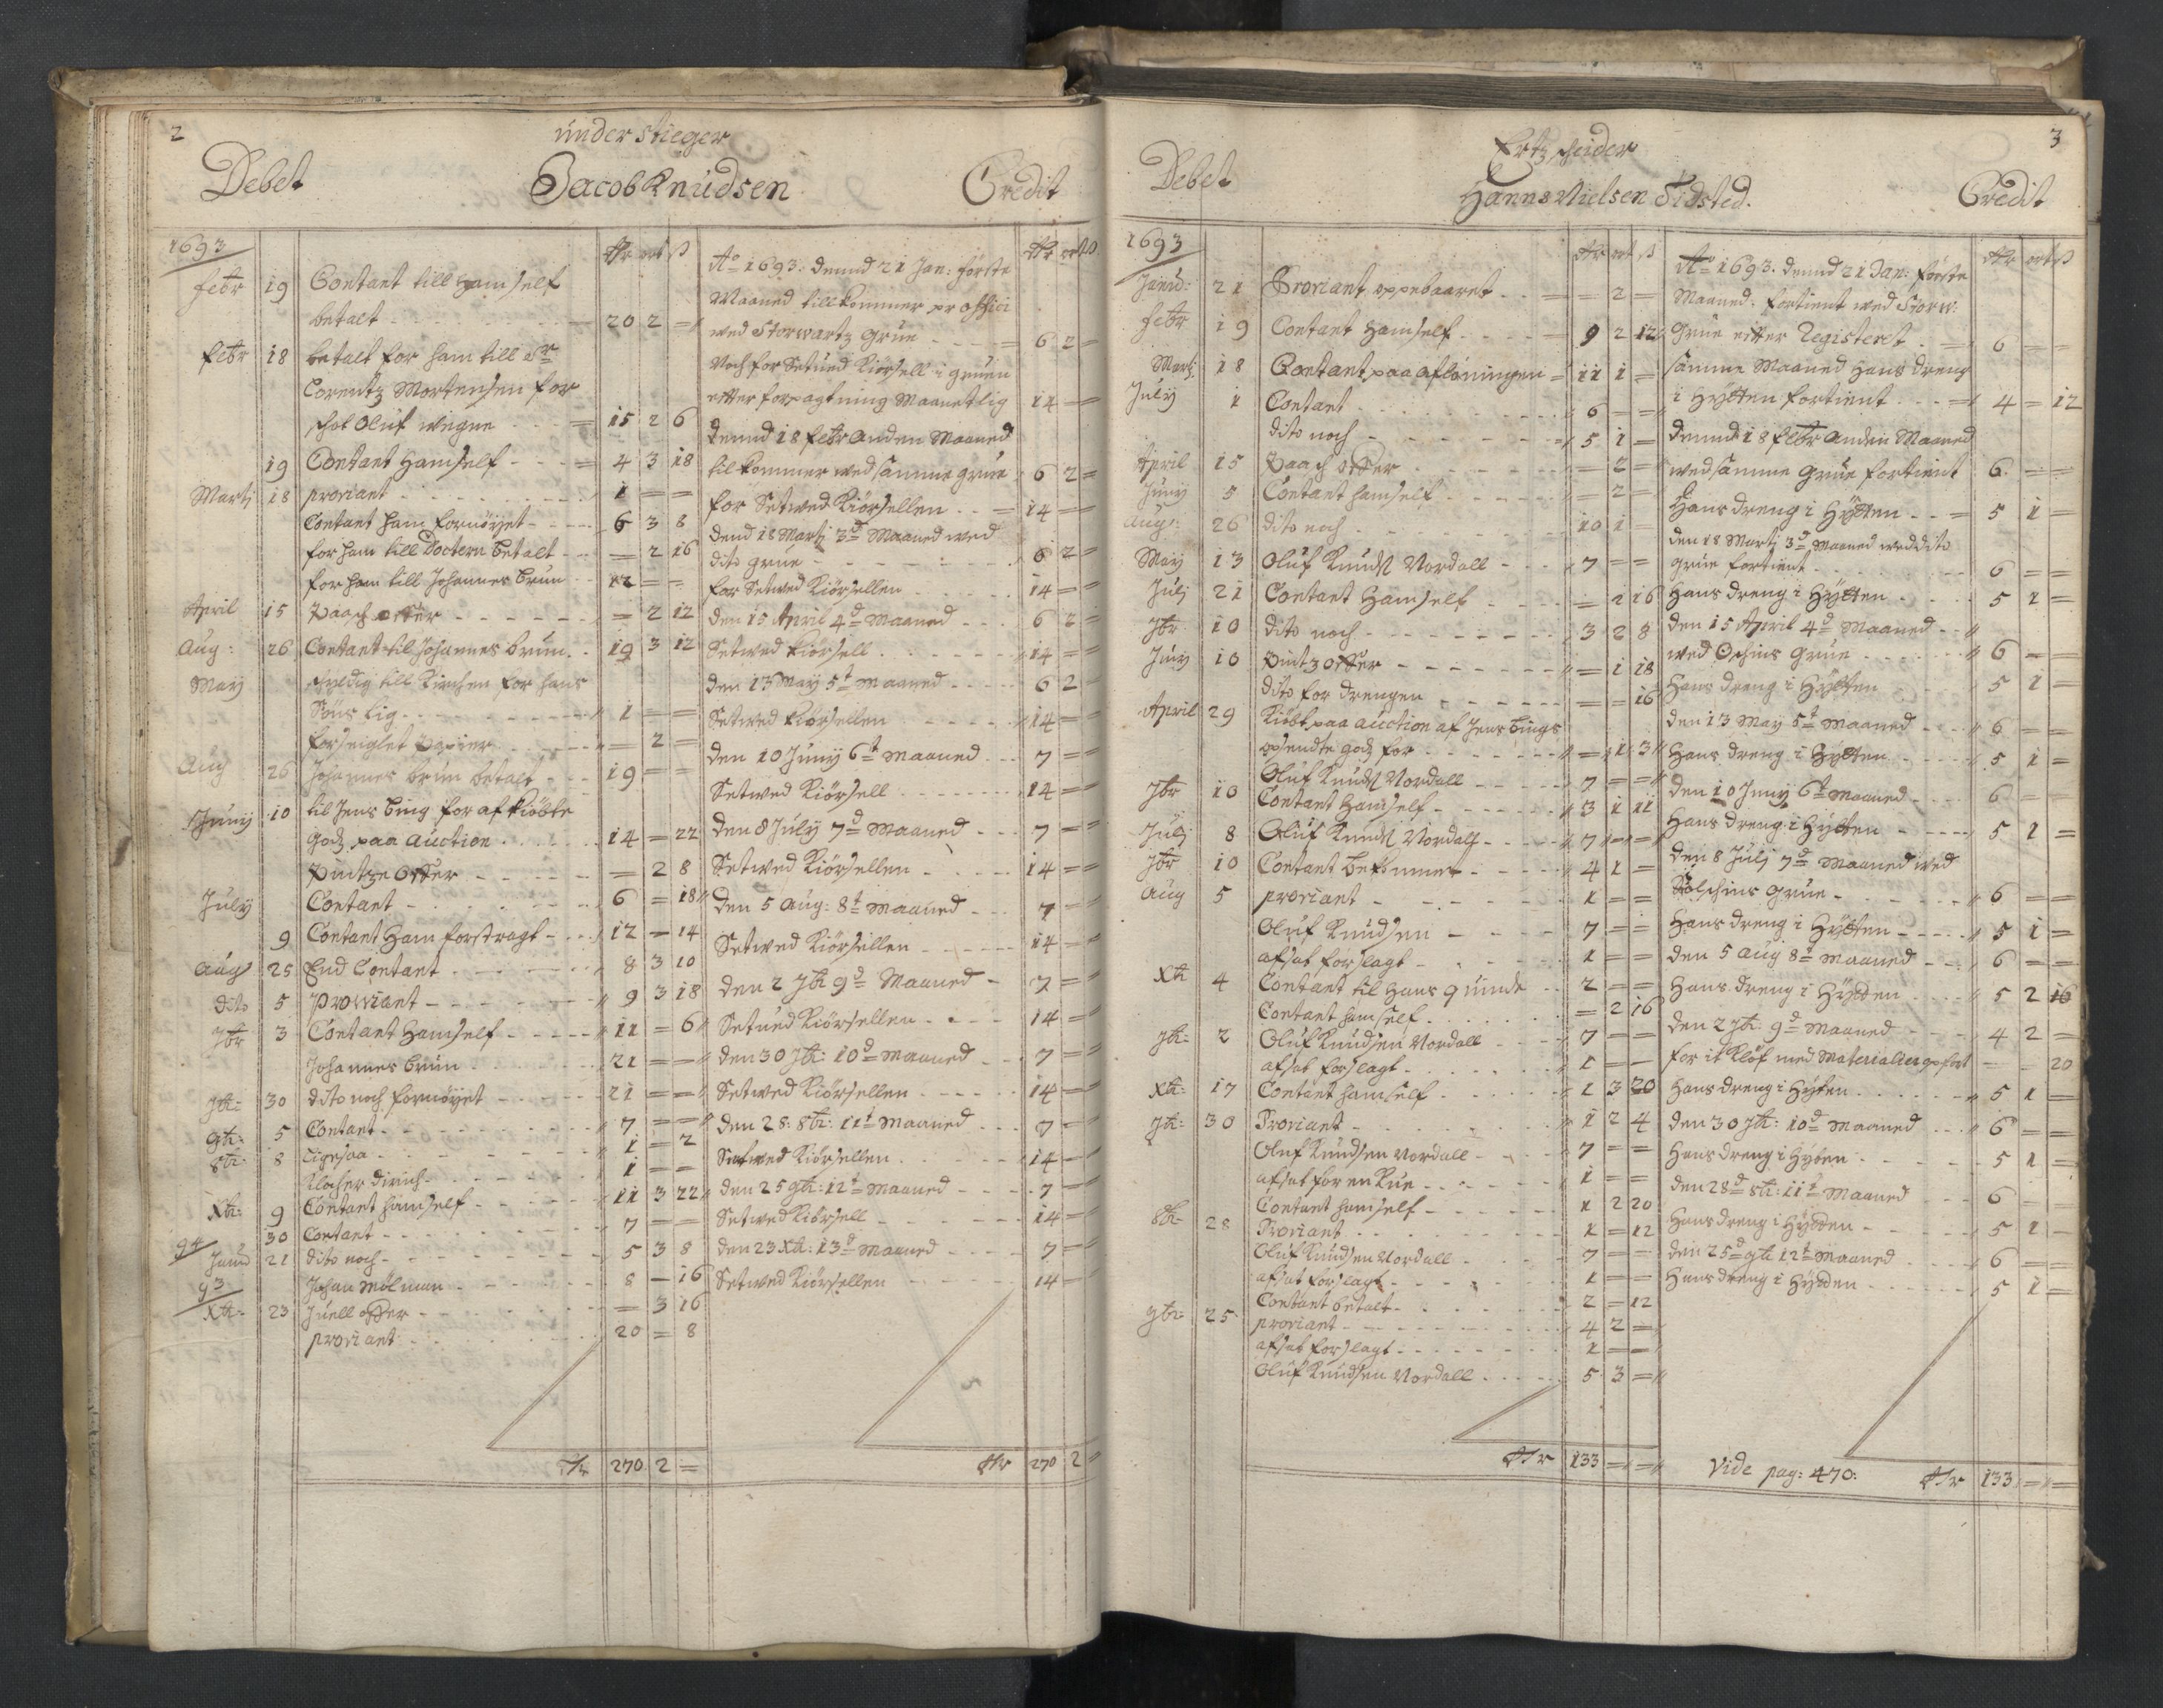 2
under Stieger
Debet Jacob Knudsen Credit
1693 Rdr ort ß
Febr 19 Contant till ham self
betalt - - - 20 2 =
Febr 18 betalt for ham till Sr
Lorentz Mortensen for
Oluf wegne - - - 15 2 6
19 Contant Hamself - - - 4 3 18
Martj 18 proviant - - - 1 = =
Contant ham fornöyet - - - 6 3 8
for ham till Doctern betalt - - = 2 16
for ham till Johannes brun - - 12 = =
April 15 Paach offer - - - = 2 12
Aug: 26 Contant til Johannes brun - - 19 3 12
May schyldig till Kirchen for hans
Söns lig - - - 1 = =
forseiglet Papier - - - = 2 =
Aug 26 Johannes brun betalt - - - 19 = =
Juny 10 til Jens bing for af kiöbte
godz paa Auction - - - 14 = 22
Pintze offer - - - = 2 8
July Contant - - - 6 = 18
9 Contant Ham forstragt - - - 12 = 14
Aug 25 End Contant - - - 8 3 10
dito 5 proviant - - - 9 3 18
7br 3 Contant Hamself - - - 11 = 6
Johannes brun - - - 21 = =
7br: 30 dito noch fornöyet - - - 21 = =
9br: 5 Contant - - - 7 = =
8br: 8 Ligesaa - - - 1 = 2
Klocher dirich - - - 1 = =
Xbr: 9 Contant hamself - - - 11 3 22
30 Contant - - - 7 = =
94 Janu 21 dito noch - - - 5 3 8
93 Johan mölman - - - 8 = 16
Xbr: 23 Juell offer - - - = 3 16
proviant - - - 20 = 8
Rdr 270 2 =
Rdr ort ß
Ao 1693: dennd 21 Jan: förste
Maaned tillkommer pr officj
wed Storwartz Grue - - - 6 2 =
Noch for Setwed Kiörsell i gruen
efter forpagtning Maanetlig 14 = =
dennd 18 Febr anden Maaned
tilkommer wed samme grue 6 2 =
for Setwed Kiörsellen - - 14 = =
dend 18 Martj 3d Maaned wed
dito grue - - - 6 2 =
for Setwed Kiörsellen - - - 14 = =
den 15 April 4d Maaned - - - 6 2 =
Setwed Kiörsell - - - 14 = =
den 13 May 5t Maaned - - - 6 2 =
Setwed Kiörsellen - - - 14 = =
den 10 Juny 6t Maaned - - - 7 = =
Setwed Kiörsell - - - 14 = =
den 8 July 7d Maaned - - - 7 = =
Setwed Kiörsellen - - - 14 = =
den 5 Aug: 8t Maaned - - - 7 = =
Setwed Kiörsellen - - - 14 = =
den 2 7br 9d Maaned - 7 = =
Setued Kiörsellen - - - 14 = =
den 30 7br: 10d Maaned - - - 7 = =
Setwed Kiörsellen - - - 14 = =
den 28: 8br: 11t Maaned - - - 7 = =
Setwed Kiörsellen - - - 14 = =
den 25 9br: 12t Maaned - - - 7 = =
Setwed Kiörsell - - - 14 = =
den 23 Xbr: 13d Maaned - - - 7 = =
Setwed Kiörsellen - - - 14 = =
Rdr 270 2 =
3
Ertzscheider
Debet Hanns Nielsen Tidsted. Credit
1693 Rdr ort ß
Janu: 21 Proviant oppebaaret - - = 2 =
Febr 19 Contant Hamself - - - 9 2 12
Martj 18 Contant paa aflöningen 11 1 =
July 1 Contant - - - 6 = =
dito noch - - - 5 1 =
April 15 Paach offer - - - = 2 =
Juny 5 Contant hamself - - - = 2 =
Aug: 26 dito noch - - - 10 1 =
May 13 Oluf Knuds Nordall - - - 7 = =
Julj 21 Contant Hamself - - - = 2 16
7br 10 dito noch - - - 3 2 8
Juny 10 Pintz offer - - - = 1 18
dito for drengen - - - = = 16
April 29 Kiöbt paa auction af Jens bings
godz for - - - = 1 3
Oluf Knuds Nordall - - - 7 = =
7br 10 Contant Hamself - - - 3 1 11
Julj 8 Oluf Knuds Nordall - - - 7 = =
7br 10 Contant bekommet - - - 4 1 =
Aug 5 proviant - - - 1 = =
Oluf Knudsen - - - 7 = =
afsat forslagt - - - 1 = =
Xbr 4 Contant til Hans quinde - - 2 = =
Contant hamself - - - = 2 16
9br: 2 Oluf Knudsen Nordall - - - 7 = =
afsat forslagt - - - 1 = =
Xbr: 17 Contant hamself - - - 1 3 20
7br: 30 Proviant - - - 1 2 4
Oluf Knudsen Nordall - - - 7 = =
afsat for en Kue - - - 1 = =
Contant hamself - - - 1 2 20
8br: 28 Proviant - - - 1 = 12
Oluf Knudsen Nordall - - - 7 = =
afsat forslagt - - - 1 = =
Contant betalt - - - 2 = 12
9br: 25 proviant - - - 4 2 =
afsat forslagt - - - 1 = =
Oluf Knudsen Nordall - - - 5 3 =
Rdr 133 = =
Rdr ort ß
Ao 1693. dennd 21 Jan: förste
Maaned: fortient wed Storw:
Grue effter Registeret - 6 = =
samme Maaned Hans dreng
i Hytten fortient - - - 4 = 12
dennd 18 Febr Anden Maaned
wed samme Grue fortient 6 = =
Hans dreng i Hytten - - - 5 1 =
den 18 Martj 3d Maaned wed dito
grue fortient - - - 6 = =
Hans dreng i Hytten - - - 5 1 =
den 15 April 4d Maaned - -
wed Grue - - - 6 = =
Hans dreng i Hytten - - - 5 1 =
den 13 May 5t Maaned - - - 6 = =
Hans dreng i Hytten - - - 5 1 =
den 10 Juny 6t Maaned - - - 6 = =
Hans dreng i Hytten - - - 5 1 =
den 8 Julj 7d Maaned wed
Grue - - - 6 = =
Hans dreng i Hytten - - - 5 1 =
den 5 Aug 8t Maaned - - - 6 = =
Hans dreng i Hydden - - - 5 2 16
den 2 7br: 9d Maaned - - - 4 2 =
for it Klöf med Materialier opfört = = 20
Hans dreng i Hyten - - - 5 1 =
den 30 7br: 10d Maaned - - - 6 = =
Hans dreng i Hyten - - - 5 1 =
den 28d 8br: 11t Maaned - - - 6 = =
Hans dreng i Hydden - - - 5 1 =
den 25d 9br 12t Maaned - - - 6 = =
Hans dreng i Hydden - - - 5 1 =
Vide pag: 470: Rdr 133 = =